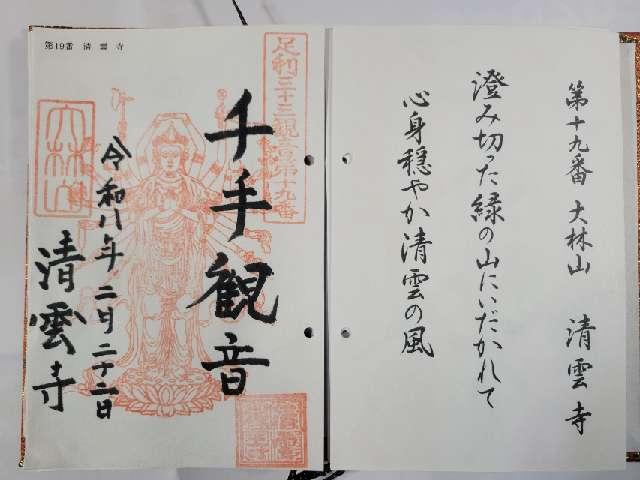 第十九番 大林山 清雲寺
澄み切った緑の山にいだかれて
心身穏やか清雲の風
第19番 清雲寺
足利三十三観音第十九番
千手観音
大林山
令和八年二月二十二日
清雲寺